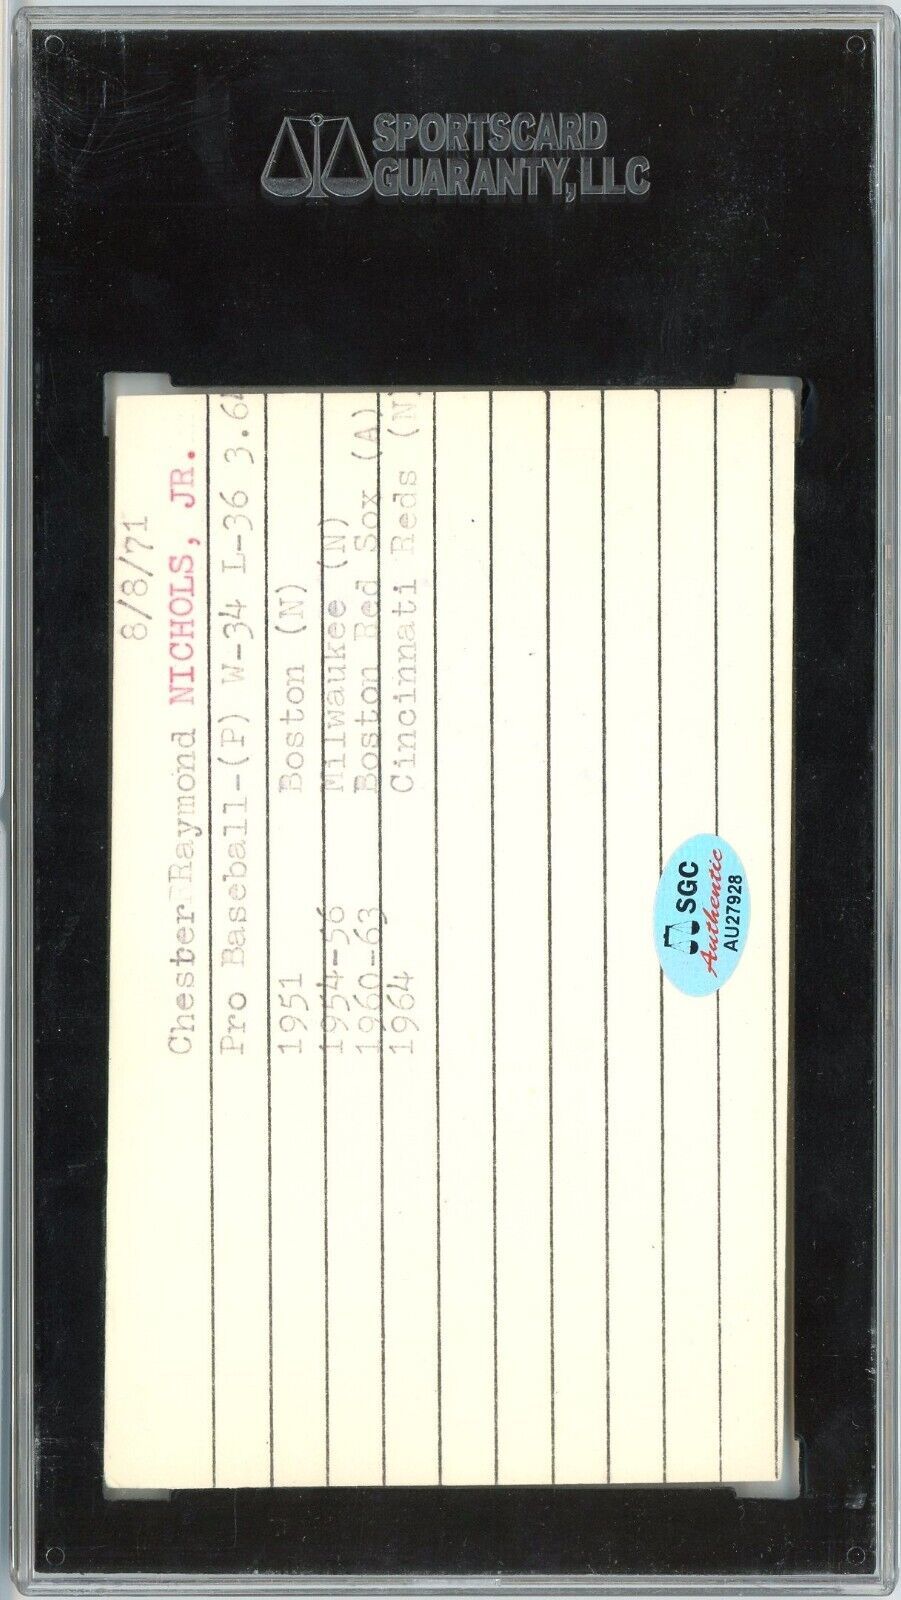 SPORTSCARD
GUARANTY, LLC
8/8/71
Chester Raymond NICHOLS, JR.
Pro Baseball-(P) W-34 L-36 3.64
1951 Boston (N)
1954-56 Milwaukee (N)
1960-63 Boston Red Sox (A)
1964 Cincinnati Reds (N)
SGC
Authentic
AU27928